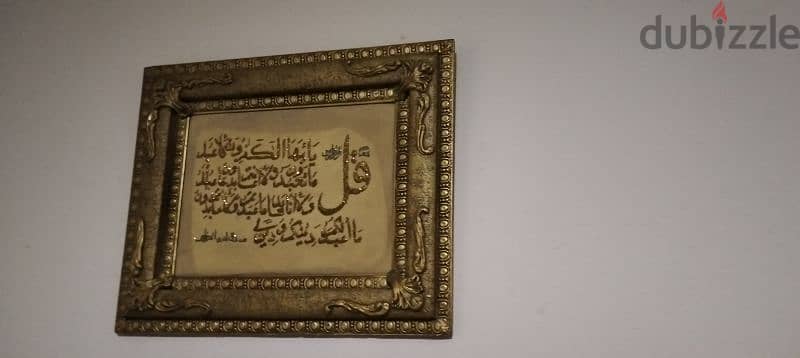 dubizzle
قل يأيها الكفرون لا أعبد
ما تعبدون ولا أنتم عبدون ما أعبد
ولا أنا عابد ما عبدتم ولا أنتم عبدون
ما أعبد لكم دينكم ولي دين